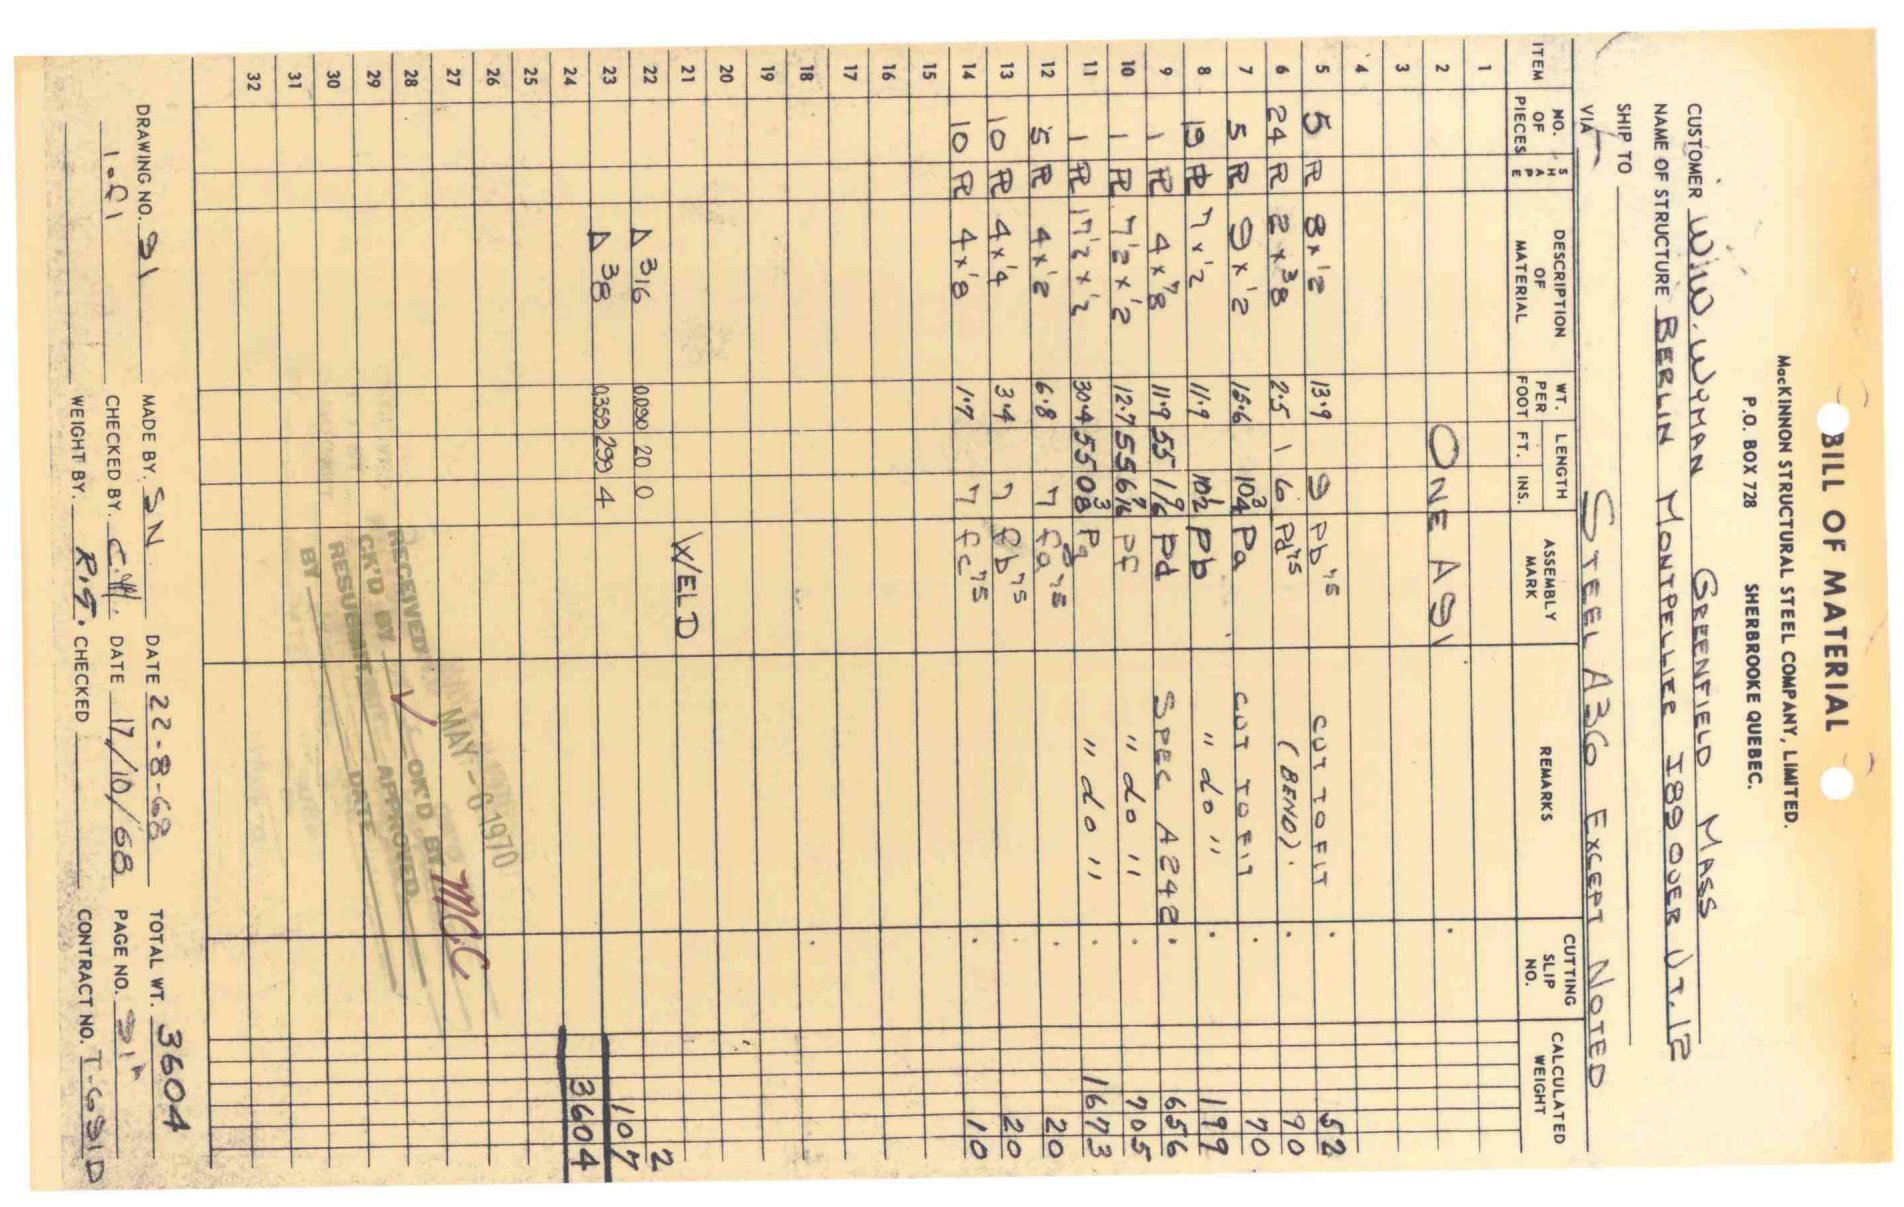 BILL OF MATERIAL
MacKINNON STRUCTURAL STEEL COMPANY, LIMITED.
P.O. BOX 728 SHERBROOKE QUEBEC.
CUSTOMER W.W. WYMAN GREENFIELD MASS
NAME OF STRUCTURE BERLIN MONTPELLIER I89 OVER UT. 12
SHIP TO
VIA STEEL A36 EXCEPT NOTED
ITEM NO. OF PIECES SHAPE DESCRIPTION OF MATERIAL WT. PER FOOT LENGTH FT. INS. ASSEMBLY MARK REMARKS CUTTING SLIP NO. CALCULATED WEIGHT
1
2 ONE AS1
3
4
5 5 PL 8 x 1/2 13.9 9 Pb 75 CUT TO FIT 52
6 24 PL 2 x 3/8 2.5 1 6 Pd 75 (BEND). 90
7 5 PL 9 x 1/2 10 3/4 Pa CUT TO FIT 70
8 19 PL 7 x 1/2 11.9 10 1/2 Pb " do " 199
9 1 PL 4 x 7/8 11.9 55 Pd SPEC A242 656
10 1 PL 7 1/2 x 1/2 12.7 55 Pf " do " 705
11 1 PL 30.4 55 0 3/8 Pg " do " 1673
12 5 PL 4 x 1/2 6.8 7 fa 75 20
13 10 PL 4 x 1/4 3.4 7 fb 75 20
14 10 PL 4 x 1/8 1.7 7 fc 75 10
15
16
17
18
19
20
21 WELD
22 Δ 3/16 0.090 20 0 2
23 Δ 3/8 0.359 299 4 107
24 3604
25
26
27
28
29
30
31
32
MAY - 6 1970
RECEIVED
CK'D BY OK'D BY M.C.C.
RESUBMIT APPROVED
BY DATE
DRAWING NO. S1 MADE BY. SN DATE 22-8-68 TOTAL WT. 3604
CHECKED BY. C.H. DATE 17/10/68 PAGE NO.
WEIGHT BY. R.G. CHECKED CONTRACT NO. T-691D